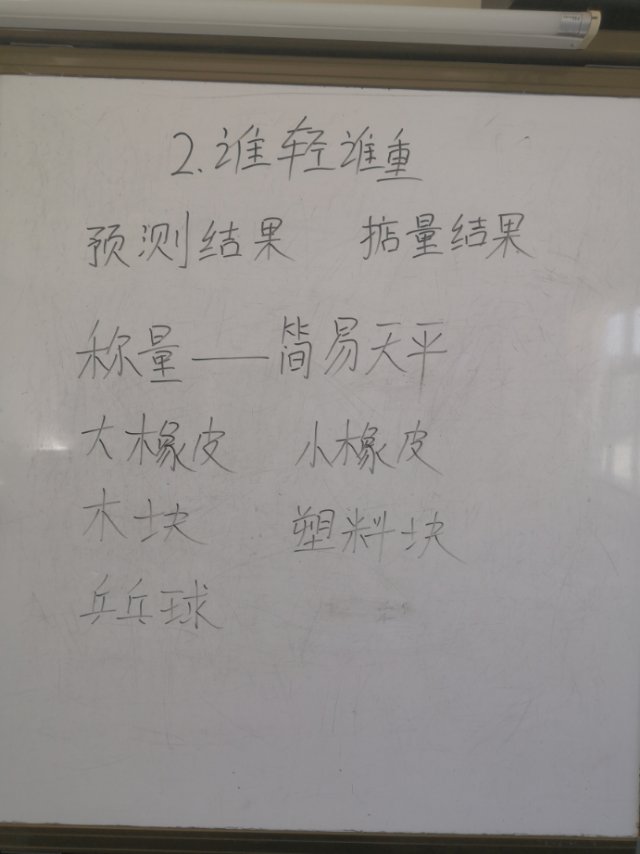 2.谁轻谁重
预测结果 掂量结果
称量——简易天平
大橡皮 小橡皮
木块 塑料块
乒乓球